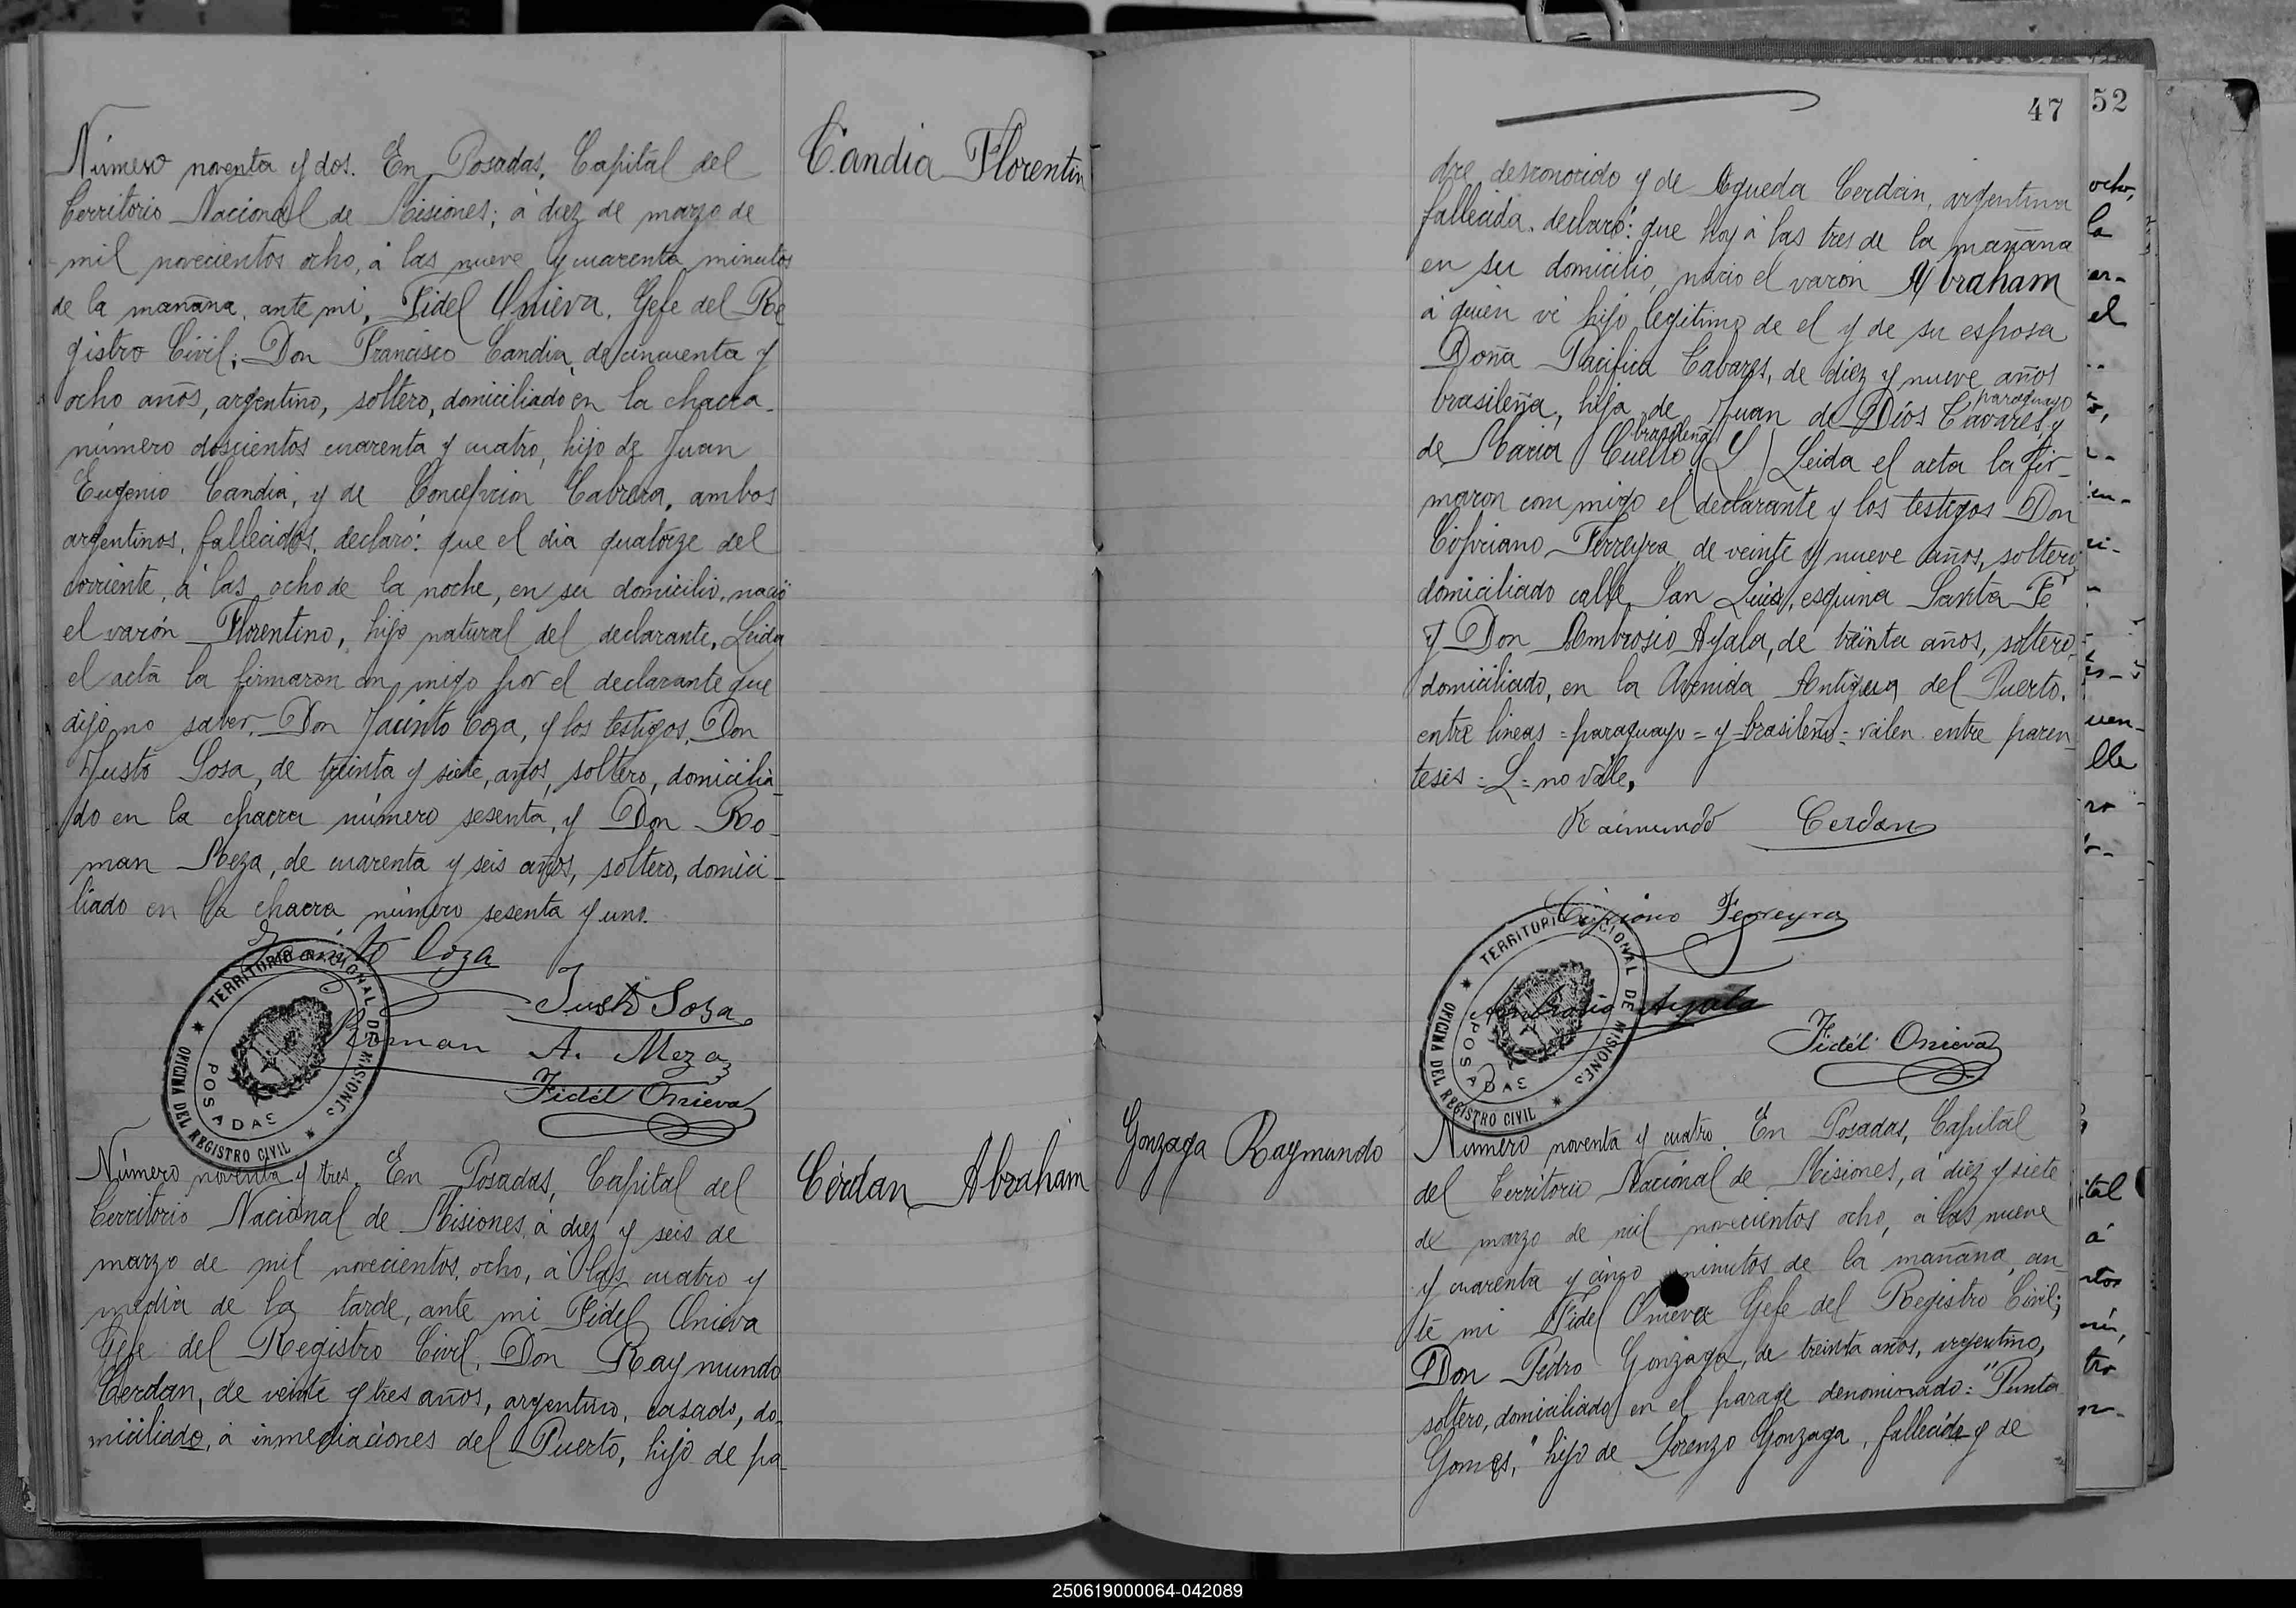 Candia Florentin
Número noventa y dos. En Posadas, Capital del
Territorio Nacional de Misiones; á diez de marzo de
mil novecientos ocho, á las nueve y cuarenta minutos
de la mañana, ante mi, Fidel Onieva, Gefe del Re
gistro Civil; Don Francisco Candia, de cincuenta y
ocho años, argentino, soltero, domiciliado en la chacra
número doscientos cuarenta y cuatro, hijo de Juan
Eugenio Candia, y de Concepcion Cabrera, ambos
argentinos, fallecidos, declaró: que el dia quatorze del
corriente, á las ocho de la noche, en su domicilio, nació
el varón Florentino, hijo natural del declarante, Leida
el acta la firmaron con migo por el declarante que
dijo no saber, Don Jacinto Coza, y los testigos, Don
Justo Sosa, de treinta y siete, años, soltero, domicilia-
do en la chacra número sesenta, y Don Ro-
man Meza, de cuarenta y seis años, soltero, domici-
liado en la chacra número sesenta y uno.
Jacinto Coza
Justo Sosa
Roman A. Meza
Fidél Onieva
TERRITORIO NACIONAL DE MISIONES
POSADAS
OFICINA DEL REGISTRO CIVIL
Cerdan Abraham
Número noventa y tres. En Posadas, Capital del
Territorio Nacional de Misiones, á diez y seis de
marzo de mil novecientos, ocho, á las cuatro y
media de la tarde, ante mi Fidel Onieva
Gefe del Registro Civil, Don Raymundo
Cerdan, de veinte y tres años, argentino, casado, do-
miciliado, á inmediaciones del Puerto, hijo de pa-
47
dre desconocido y de Agueda Cerdán, argentina
fallecida, declaró: que hoy á las tres de la mañana
en su domicilio, nacio el varón Abraham
á quien vi hijo legitimo de el y de su esposa
Doña Pacifica Tabares, de diez y nueve años
brasileña, hija de Juan de Dios Tavares, paraguayo y
de Maria Cuello brasileña (L) Leida el acta la fir-
maron con migo el declarante y los testigos Don
Cipriano Ferreyra, de veinte y nueve años, soltero
domiciliado calle San Luis, esquina Santa Fé
y Don Ambrosio Ayala, de treinta años, soltero,
domiciliado, en la Avenida Antigua del Puerto.
entre lineas = paraguayo = y brasileña = valen entre paren
tesis = L = no vale,
Raimundo Cerdan
Cipriano Ferreyra
Ambrosio Ayala
Fidél Onieva
TERRITORIO NACIONAL DE MISIONES
POSADAS
OFICINA DEL REGISTRO CIVIL
Gonzaga Raymundo
Número noventa y cuatro. En Posadas, Capital
del Territorio Nacional de Misiones, á diez y siete
de marzo de mil novecientos ocho, á las nueve
y cuarenta y cinco minutos de la mañana, an
te mi Fidel Onieva Gefe del Registro Civil;
Don Pedro Gonzaga, de treinta años, argentino,
soltero, domiciliado en el parage denominado: "Punta
Gomes," hijo de Lorenzo Gonzaga, fallecido y de
52
ocho,
la
er-
el
lle
tal
á
tro
250619000064-042089